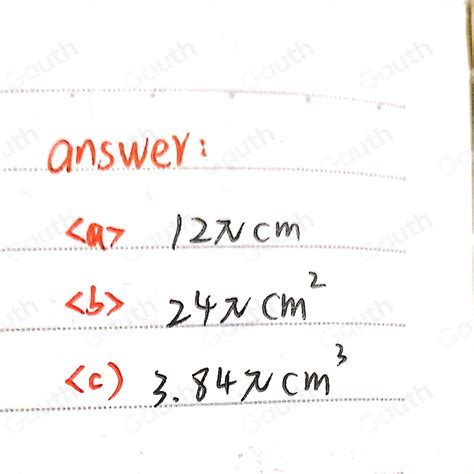 answer:
<a> 12π cm
<b> 24π cm²
<c) 3.84π cm³